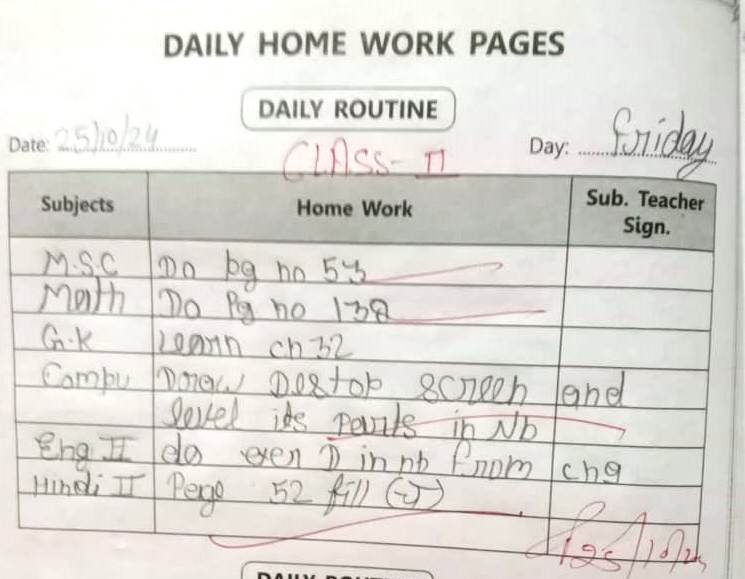 DAILY HOME WORK PAGES
DAILY ROUTINE
Date: 25/10/24 Day: Friday
CLASS- II
Subjects Home Work Sub. Teacher Sign.
M.S.C Do pg no 53
Math Do Pg no 138
G.K Learn ch 32
Compu Draw Destop screen and
level its parts in Nb
Eng II do exer D in nb from ch9
Hindi II Page 52 fill
25/10/24
DAILY ROUTINE